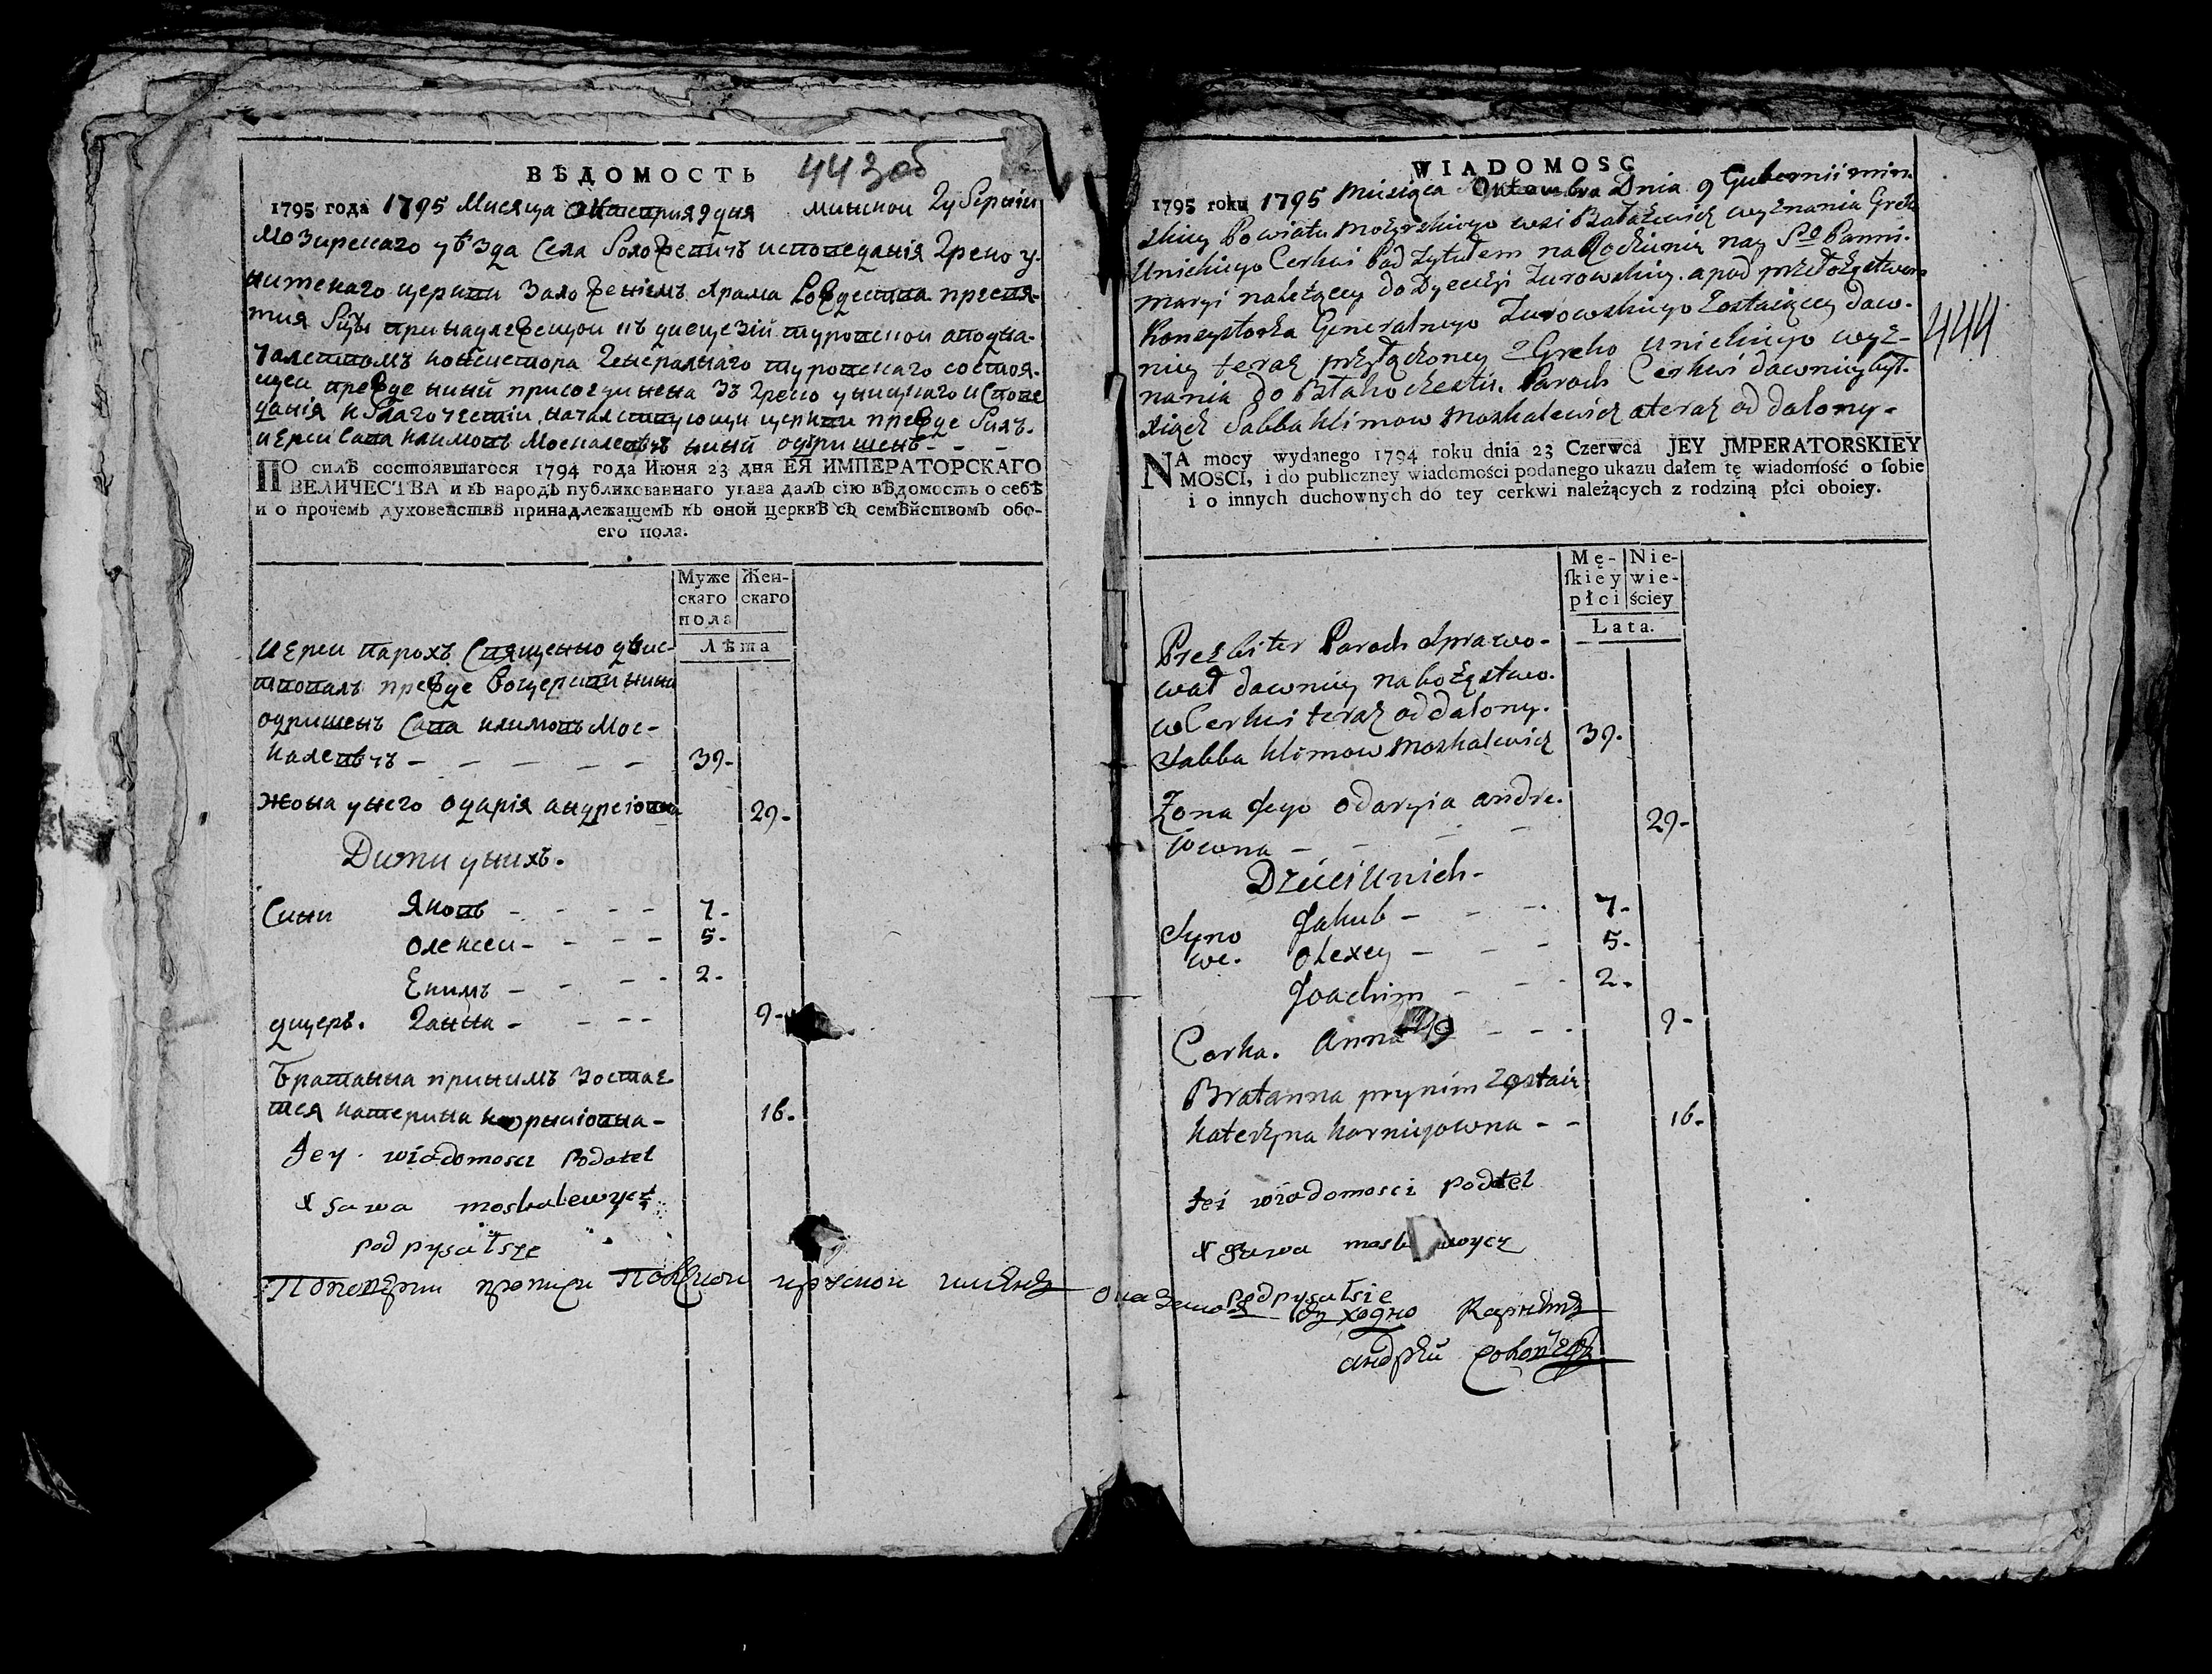 ВѢДОМОСТЬ 443об
1795 года 1795 Мисяца Октаврия 9 дня минской губернии
Мозирскаго уѣзда Села Боложевичъ исповеданія Греко у-
нитскаго церкви Заложеніемъ храма Рождества пресвя-
тия Бцы принадлежащои къ диецезій туровской аподна-
чалством консистора Генералнаго туровскаго состоя-
щеи прежде ниній присоединена Зъ Греко уницкаго испове
данія к благочестію началствующи церкви прежде билъ.
иереи Сава климовъ Москалевичъ ниній одришенъ - - -
ПО силѣ состоявшагося 1794 года Июня 23 дня ЕЯ ИМПЕРАТОРСКАГО
ВЕЛИЧЕСТВА и въ народъ публикованнаго указа далъ сію вѣдомость о себѣ
и о прочемъ духовенствѣ принадлежащемъ къ оной церквѣ съ семѣйствомъ обо-
его пола.
Муже скаго пола Жен- скаго
Лѣта
Иереи парохъ Священно дѣис-
твовалъ прежде воцеркви ниній
одришенъ Сава климовъ Мос-
калевичъ - - - - - 39-
Жона унего одарія андреіовна 29-
Дити унихъ.
Сини Яковъ - - - - 7-
олексеи - - - - 5-
Екимъ - - - - 2-
дщеръ. Ганна - - - - 9-
Братанна принимъ зостае-
тся катерина корниіовна - 16.
Jey wiadomosci Podatel
X Sawa moskalewycz
podpysałsze
WIADOMOSC
1795 roku 1795 Miesięca Oktombra Dnia 9 Gubernii min.
skiey Powiatu Mozyrskiego wsi Bałażewicz wyznania Greko
Unickiego Cerkwi Pod tytułem na Rodzienia nay Sᵒ Panni.
Maryi należącey do Dyecezyi Turowskiey. a pod przełożęstwem
Konzystorza Generalnego Turowskiego Zostaiącey daw-
niey teraz przyłączoney z Greko unickiego wyz-
nania do Błahoczestia. Paroch Cerkwi dawniey był.
Xiądz Sabba Klimow Moskalewicz a teraz oddalony-
444
NA mocy wydanego 1794 roku dnia 23 Czerwca JEY JMPERATORSKIEY
MOSCI, i do publiczney wiadomości podanego ukazu dałem tę wiadomość o sobie
i o innych duchownych do tey cerkwi należących z rodziną płci oboiey.
Mę- skiey płci Nie- wie- ściey
Lata.
Prezbiter Paroch Sprawo-
wał dawniey nabożęstwo.
w Cerkwi teraz oddalony.
Sabba Klimow Moskalewicz 39.
Zona Jego odaryia andre.
jowna - - - 29-
Dzieci unich-
Syno we. Jakub - - - 7-
Olexey - - - 5-
Joachim - - - 2-
Corka. Anna - - - 9-
Bratanna prynim zostaie
Katerzyna Korniejowna - - 16-
Jei wiadomosci podatel
X Sawa mosk wycz
podpysałsie
андрѣй